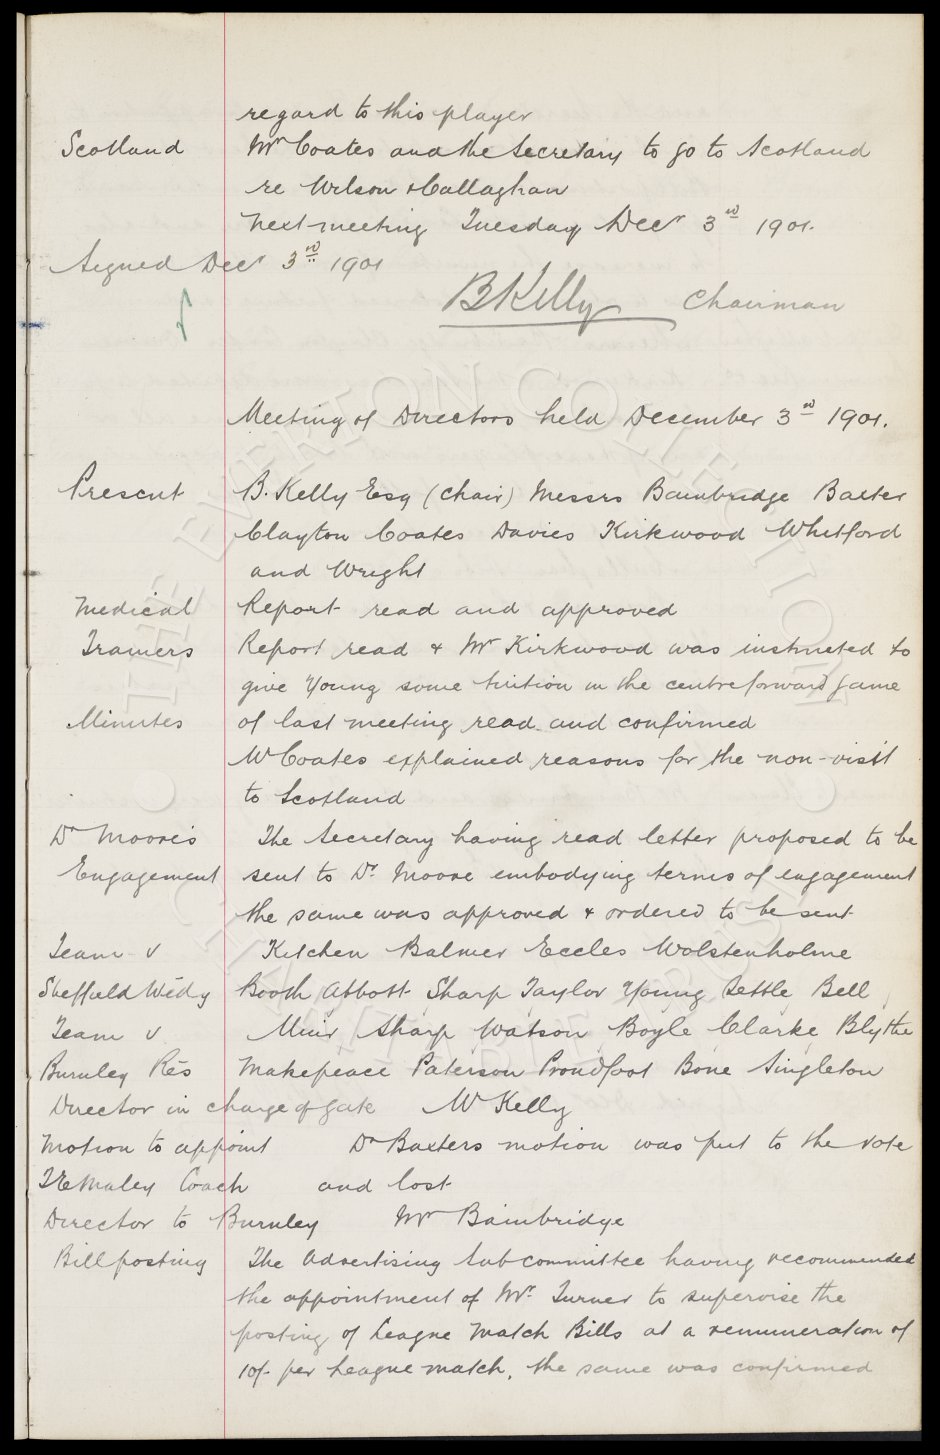 regard to this player
Scotland Mr Coates and the Secretary to go to Scotland
re Wilson & Callaghan
Next meeting Tuesday Decr 3rd 1901.
Signed Decr 3rd 1901
B Kelly Chairman
Meeting of Directors held December 3rd 1901.
Present B. Kelly Esq (Chair) Messrs Bainbridge Baxter
Clayton Coates Davies Kirkwood Whitford
and Wright
Medical Report read and approved
Trainers Report read & Mr Kirkwood was instructed to
give Young some tuition in the centreforward game
Minutes of last meeting read and confirmed
Mr Coates explained reasons for the non-visit
to Scotland
Dr Moore's The Secretary having read letter proposed to be
Engagement sent to Dr. Moore embodying terms of engagement
the same was approved & ordered to be sent
Team v Kitchen Balmer Eccles Wolstenholme
Sheffield Wedy Booth Abbott Sharp Taylor Young Settle Bell
Team v Muir Sharp Watson Boyle Clarke Blythe
Burnley Res Makepeace Paterson Proudfoot Bone Singleton
Director in charge of gate Mr Kelly
Motion to appoint Dr Baxters motion was put to the vote
T E Maley Coach and lost
Director to Burnley Mr Bainbridge
Billposting The Advertising Sub-committee having recommended
the appointment of Mr. Turner to supervise the
posting of League Match Bills at a remuneration of
10/- per League match, the same was confirmed
THE EVERTON COLLECTION